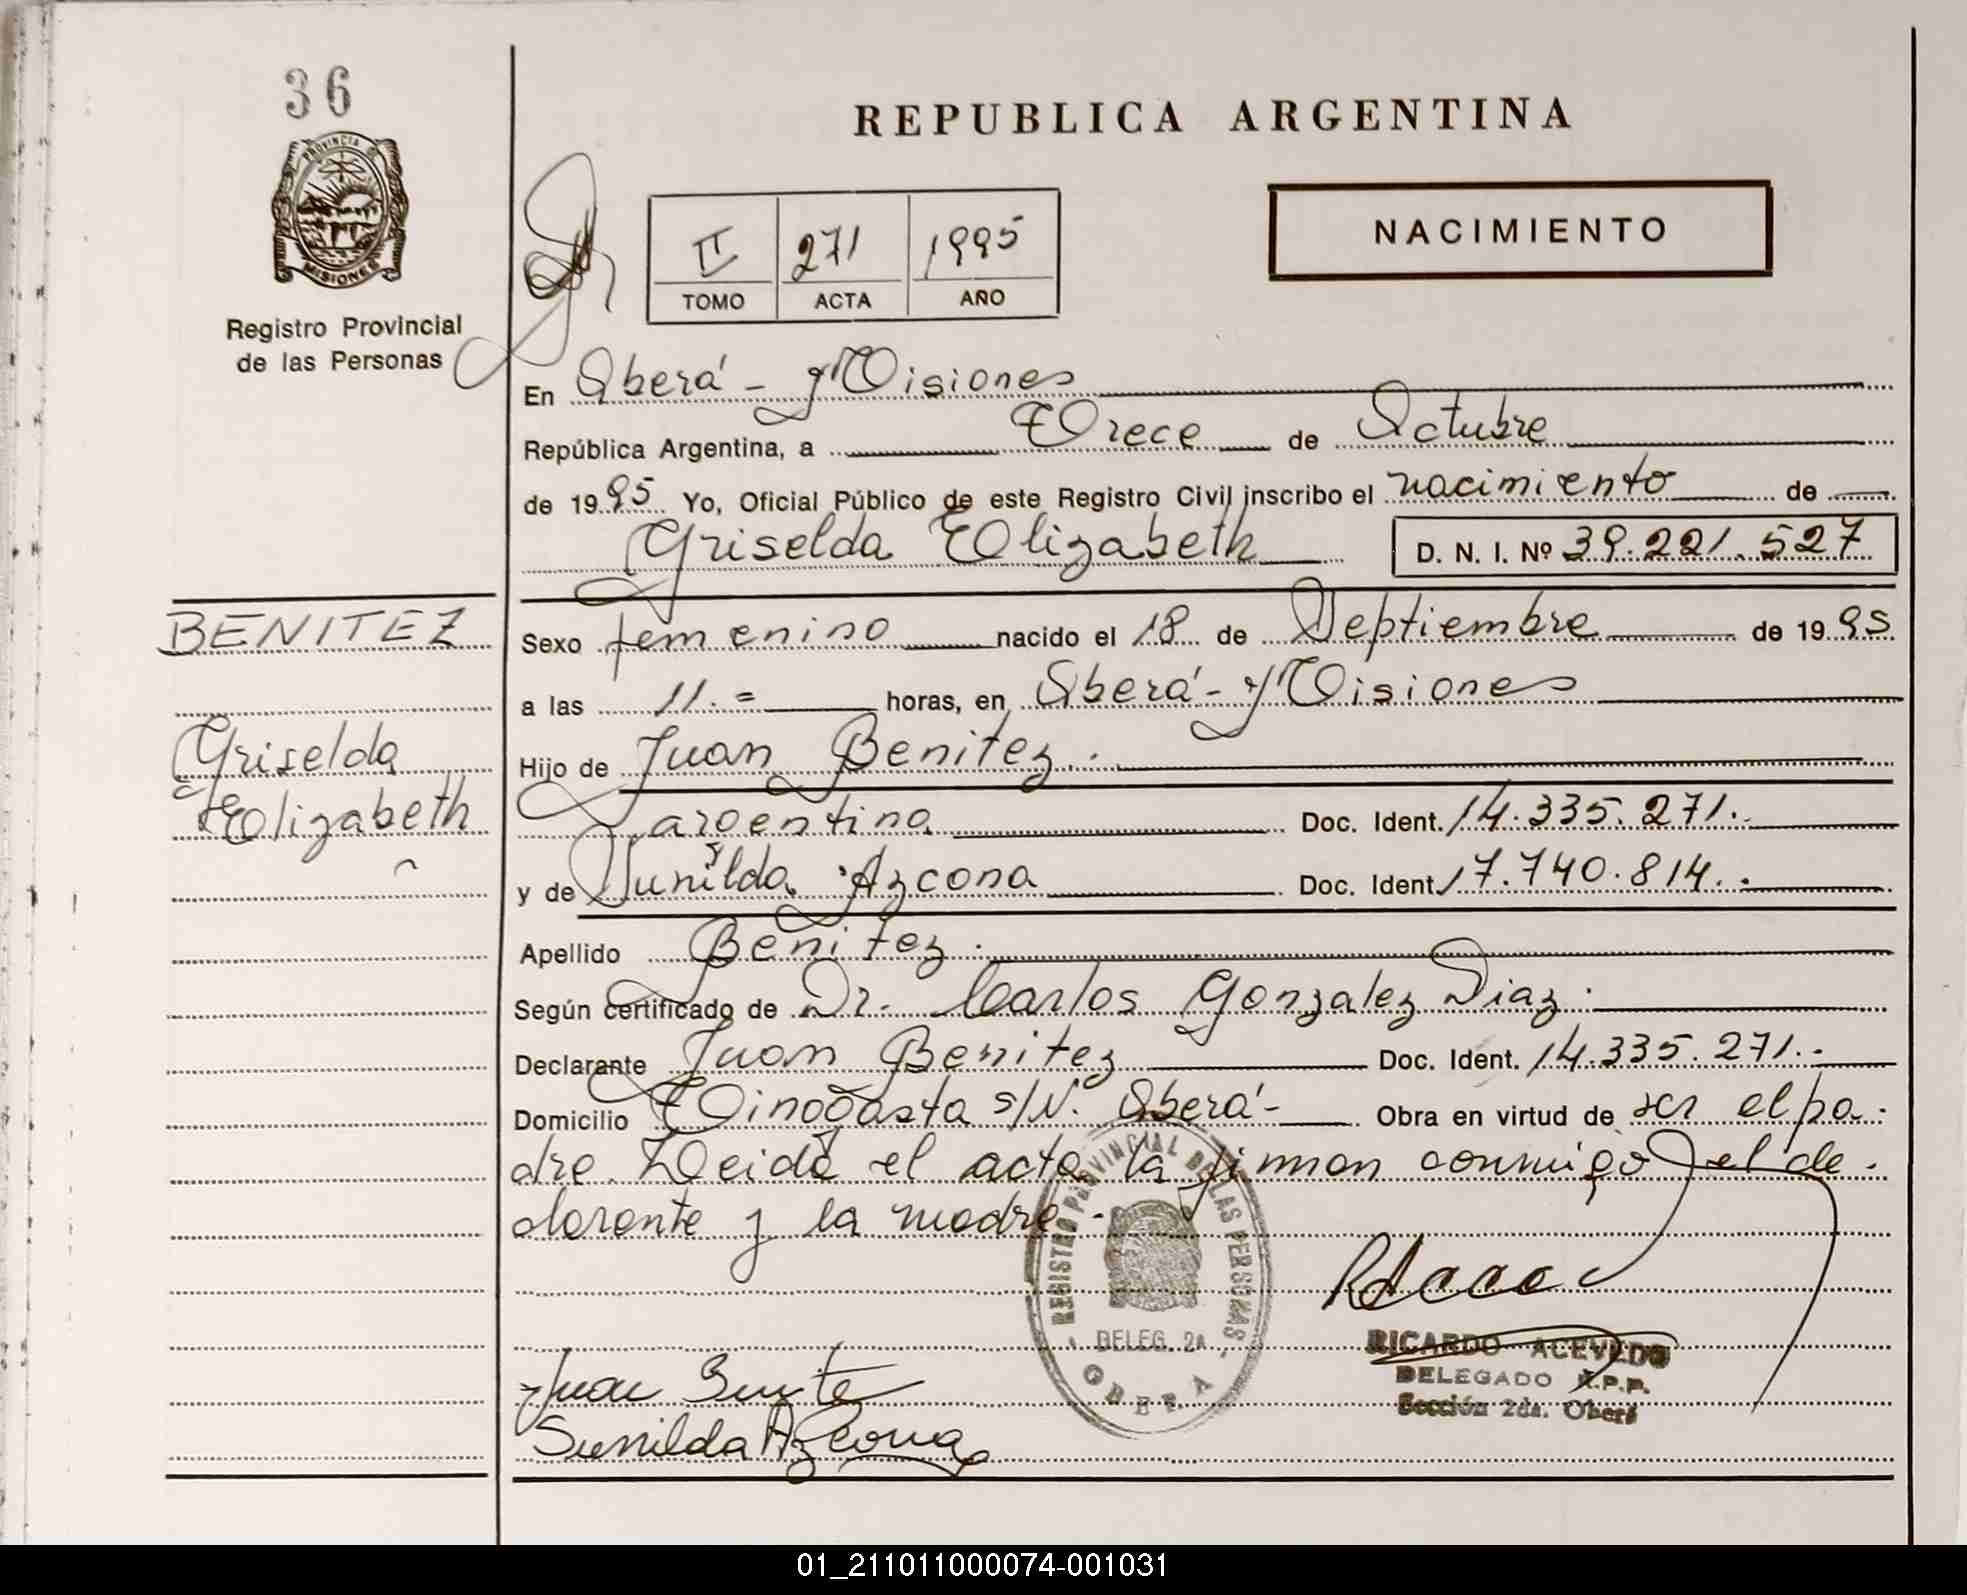 36
PROVINCIA DE
MISIONES
Registro Provincial
de las Personas
REPUBLICA ARGENTINA
NACIMIENTO
II 271 1995
TOMO ACTA AÑO
En Oberá - Misiones
República Argentina, a Trece de Octubre
de 1995 Yo, Oficial Público de este Registro Civil inscribo el nacimiento de
Griselda Elizabeth D. N. I. Nº 39.221.527
BENITEZ
Griselda
Elizabeth
Sexo femenino nacido el 18 de Septiembre de 1995
a las 11.= horas, en Oberá - Misiones
Hijo de Juan Benitez.
argentina Doc. Ident. 14.335.271.
y de Sunilda Azcona Doc. Ident. 17.740.814.
Apellido Benitez.
Según certificado de Dr. Carlos Gonzalez Diaz.
Declarante Juan Benitez Doc. Ident. 14.335.271.-
Domicilio Tinogasta s/N. Oberá- Obra en virtud de ser el pa-
dre. Leida el acta la firman conmigo el de-
clarante y la madre.-
REGISTRO PROVINCIAL DE LAS PERSONAS
DELEG. 2A
OBERA
RICARDO ACEVEDO
DELEGADO R.P.P.
Sección 2da. Oberá
Juan Benite
Sunilda Azcona
01_211011000074-001031